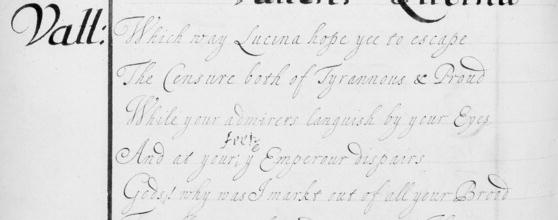 Vall:
Which way Lucina hope yee to escape
The Censure both of Tyrannous & Proud
While your admirers languish by your Eyes
feete
And at your, y Emperour dispairs
Gods! why was I markt out of all your Brood